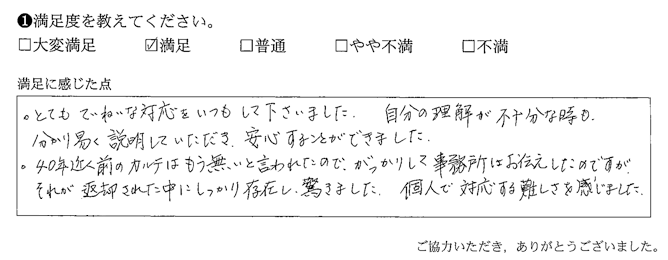 ❶満足度を教えてください。
□大変満足 ☑満足 □普通 □やや不満 □不満
満足に感じた点
。とても ていねいな対応をいつもして下さいました. 自分の理解が不十分な時も.
分かり易く説明していただき、安心することができました.
。40年近く前のカルテはもう無いと言われたので、がっかりして事務所はお伝えしたのですが
それが返却された中にしっかり存在し、驚きました. 個人で対応する難しさを感じました.
ご協力いただき，ありがとうございました。